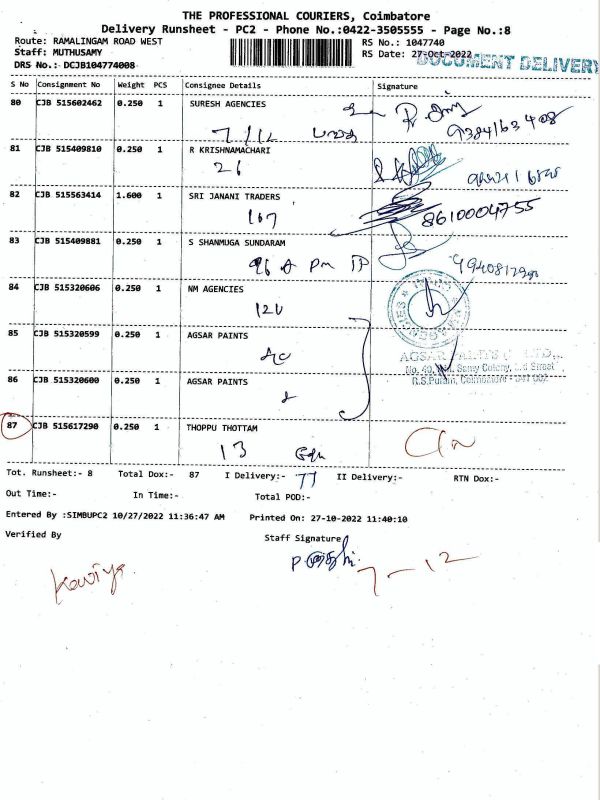 THE PROFESSIONAL COURIERS, Coimbatore
Delivery Runsheet - PC2 - Phone No.:0422-3505555 - Page No.:8
Route: RAMALINGAM ROAD WEST
RS No.: 1047740
Staff: MUTHUSAMY
RS Date: 27-Oct-2022
DOCUMENT DELIVERY
DRS No.: DCJB104774008
S No Consignment No Weight PCS Consignee Details Signature
80 CJB 515602462 0.250 1 SURESH AGENCIES
7/12
9384163408
81 CJB 515409810 0.250 1 R KRISHNAMACHARI
26
82 CJB 515563414 1.600 1 SRI JANANI TRADERS
167 8610004755
83 CJB 515409881 0.250 1 S SHANMUGA SUNDARAM
96 A pm TP
84 CJB 515320606 0.250 1 NM AGENCIES
85 CJB 515320599 0.250 1 AGSAR PAINTS
AGSAR
86 CJB 515320600 0.250 1 AGSAR PAINTS
R.S.Puram, Coimbatore
87 CJB 515617290 0.250 1 THOPPU THOTTAM
13
Tot. Runsheet:- 8 Total Dox:- 87 I Delivery:- 77 II Delivery:- RTN Dox:-
Out Time:- In Time:- Total POD:-
Entered By :SIMBUPC2 10/27/2022 11:36:47 AM Printed On: 27-10-2022 11:40:10
Verified By Staff Signature
Kaviya
7-12